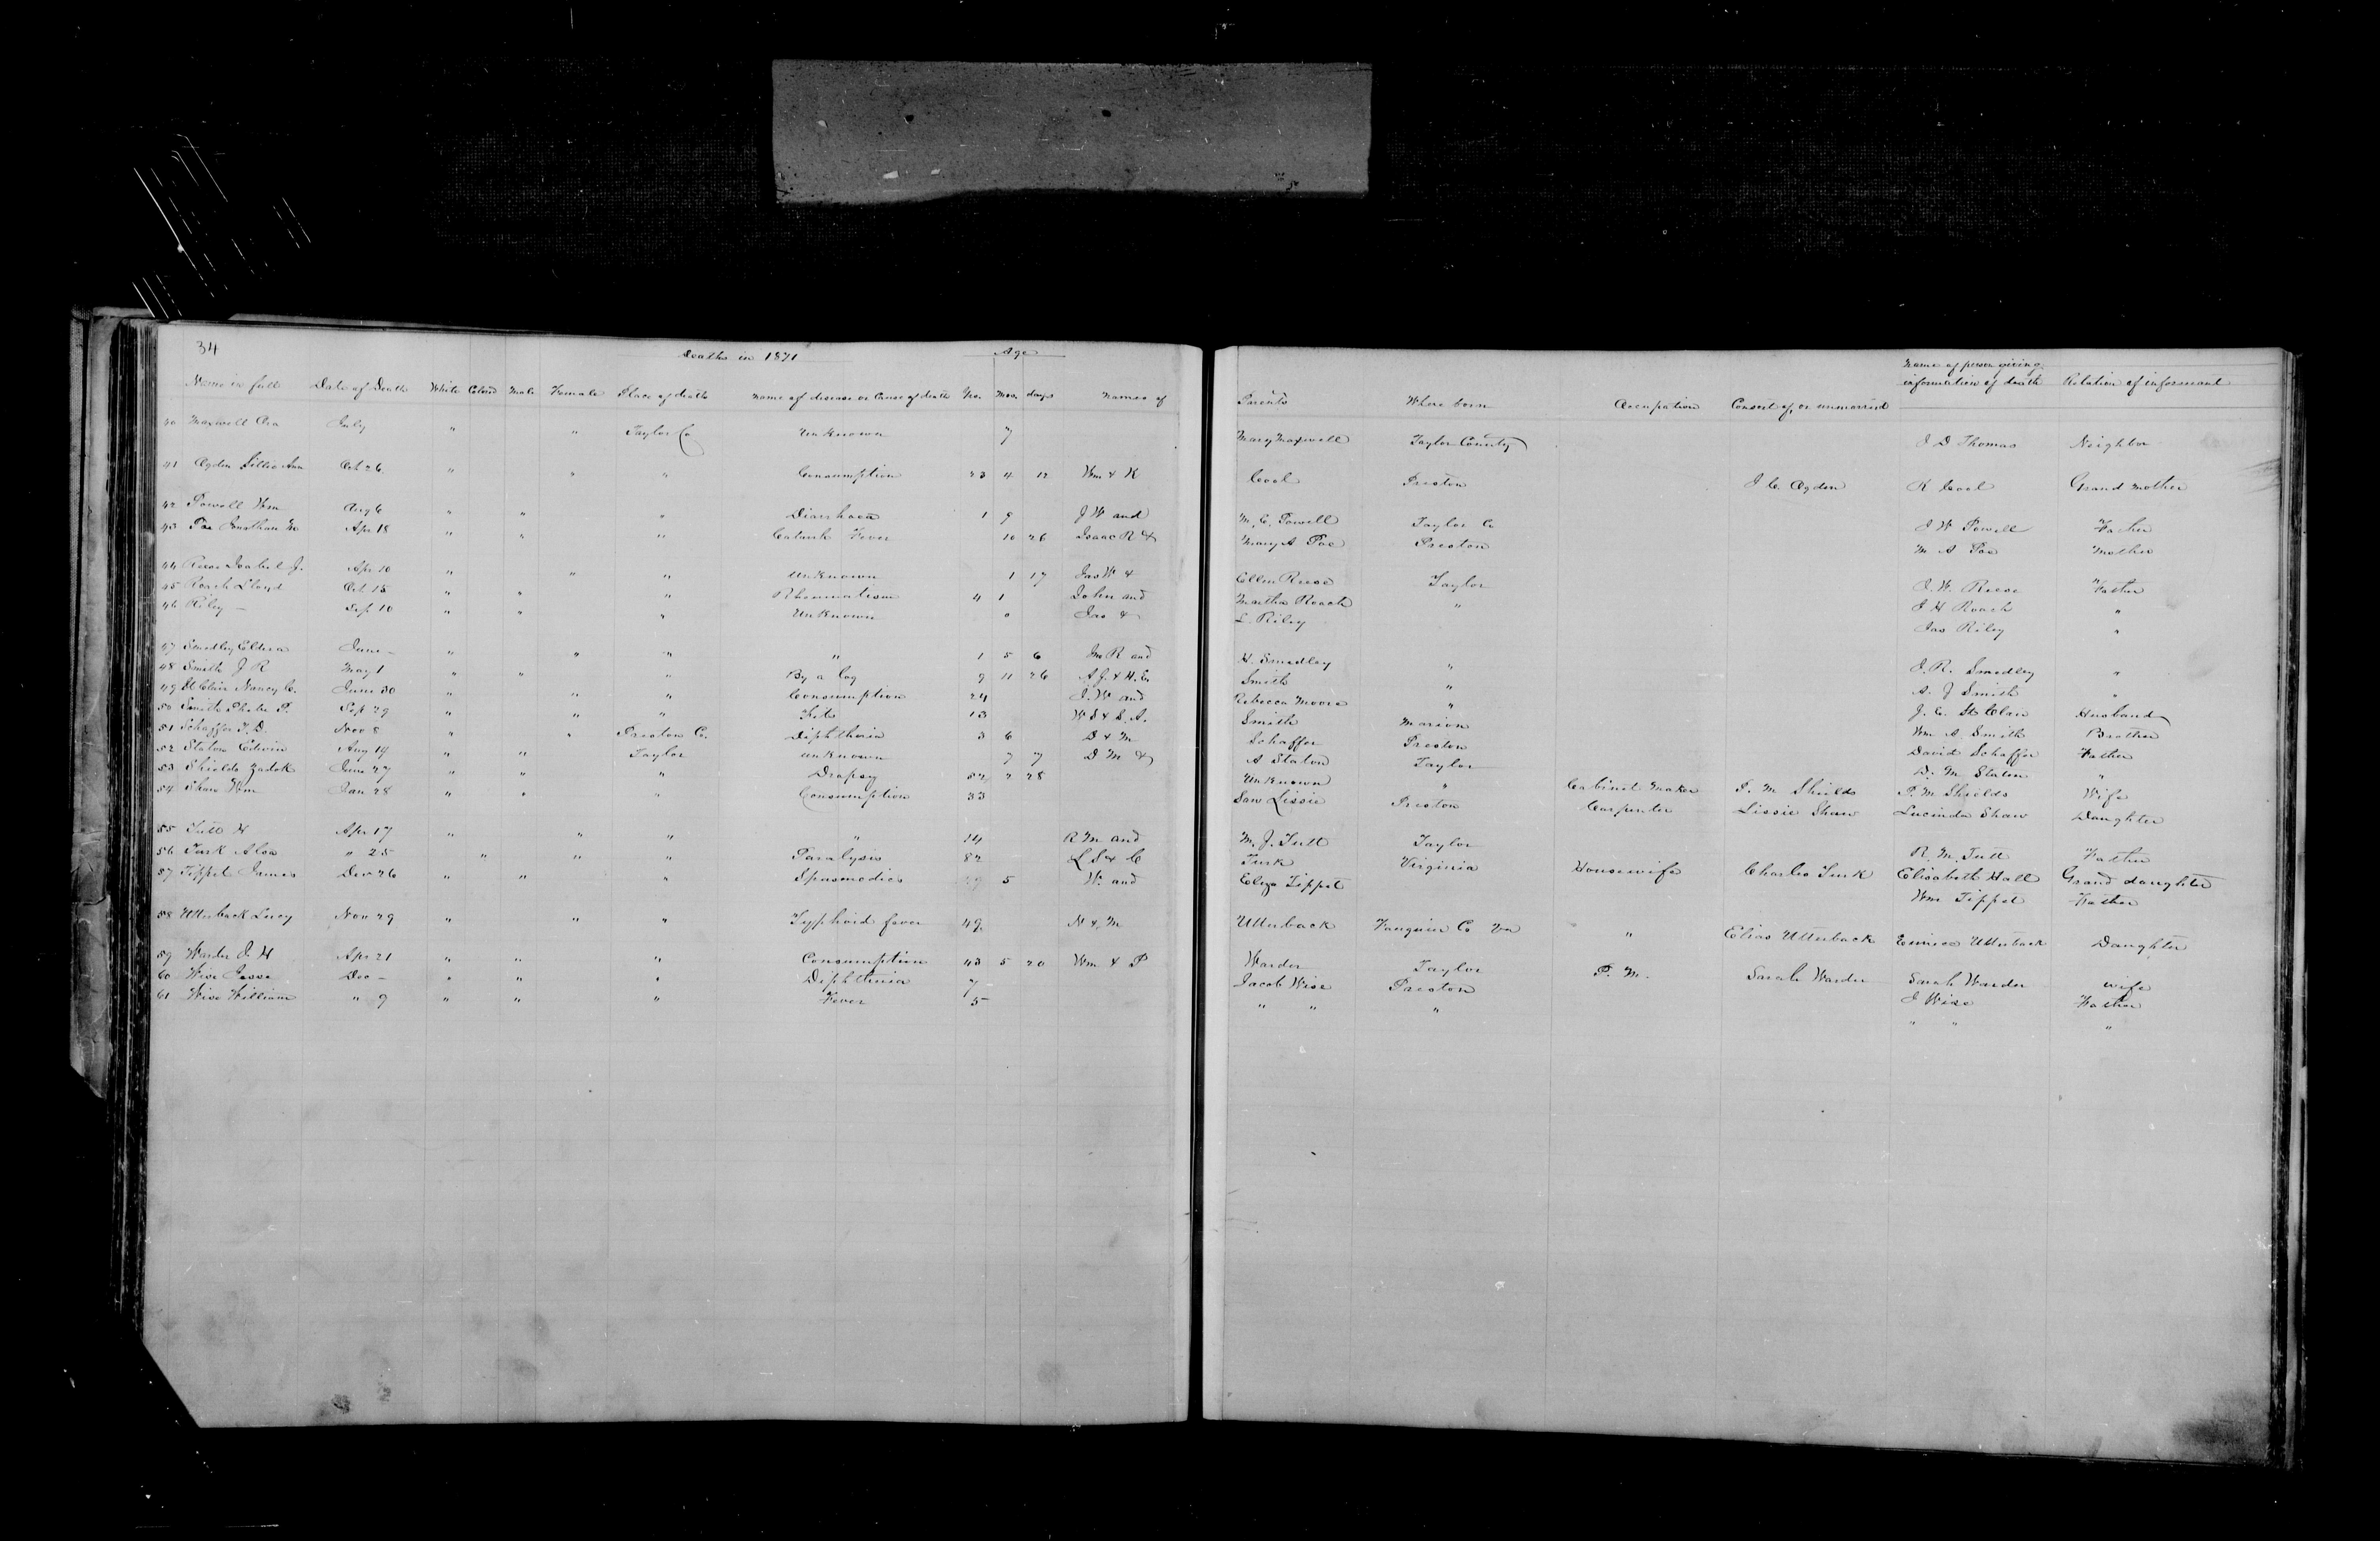 34
Deaths in 1871 Age
Name of person giving
Name in full Date of Death White Colored Male Female Place of death Name of disease or Cause of death Yrs. Mos. days Names of Parents Where born Occupation Consort of, or unmarried information of death Relation of informant
40 Maxwell Ora July " " Taylor Co Unknown 7 Mary Maxwell Taylor County J D Thomas Neighbor
41 Ogden Lillie Ann Oct 26 " " " Consumption 23 4 12 Wm & K Cool Preston J C. Ogden K Cool Grand mother
42 Powell Wm Aug 6 " " " Diarrhoea 1 9 J W and M. C. Powell Taylor Co J W Powell Father
43 Poe Jonathan M Apr 18 " " " Catarrh Fever 10 26 Isaac R & Mary A Poe Preston M A Poe Mother
44 Reese Isabel J. Apr 10 " " " Unknown 1 17 Jas W & Ellen Reese Taylor J. W. Reese Father
45 Roach Lloyd Oct 18 " " " Rheumatism 4 1 John and Martha Roach " J H Roach "
46 Riley — Sep 10 " " " Unknown 0 Jas & L. Riley Jas Riley "
47 Smedley June – " " " " 1 5 6 R and H. Smedley " J. R. Smedley "
48 Smith J R May 1 " " " By a log 9 11 26 A. J. & H. E. Smith " A. J Smith "
49 St Clair Nancy C. June 30 " " " Consumption 24 J. W and Rebecca Moore " J. C. St Clair Husband
50 Smith Phebe P. Sep 29 " " " Fits 13 W S & S. A. Smith Marion Wm A. Smith Brother
51 Schaffer F. D. Nov 8 " " Preston C. Diphtheria 3 6 D & M Schaffer Preston David Schaffer Father
52 Staton Edwin Aug 14 " " Taylor Unknown 7 7 D M & A Staton Taylor D. M Staton "
53 Shields Zadok June 27 " " " Dropsy 52 2 28 Unknown " Cabinet Maker P. M Shields P. M Shields Wife
54 Shaw Wm Jan 28 " " " Consumption 33 Lissie Preston Carpenter Lissie Shaw Lucinda Shaw Daughter
55 Tutt H Apr 17 " " " " 14 R M and M. J. Tutt Taylor R. M. Tutt Father
56 Turk " 25 " " " Paralysis 82 L S & C Turk Virginia Housewife Charles Turk Elisabeth Hall Grand daughter
57 Tippet James Dec 26 " " " Spasmodics 5 W. and Eliza Tippet Wm Tippet Father
58 Utterback Lucy Nov 29 " " " Typhoid fever 49 N & M Utterback Fauquier C Va " Elias Utterback Utterback Daughter
59 Warder J H Apr 21 " " " Consumption 43 5 20 Wm & P Warder Taylor P. M. Sarah Warder Sarah Warder wife
60 Wise Jesse Dec – " " " Diphtheria 7 Jacob Wise Preston J Wise Father
61 Wise William " 9 " " " Fever 5 " " " " " "